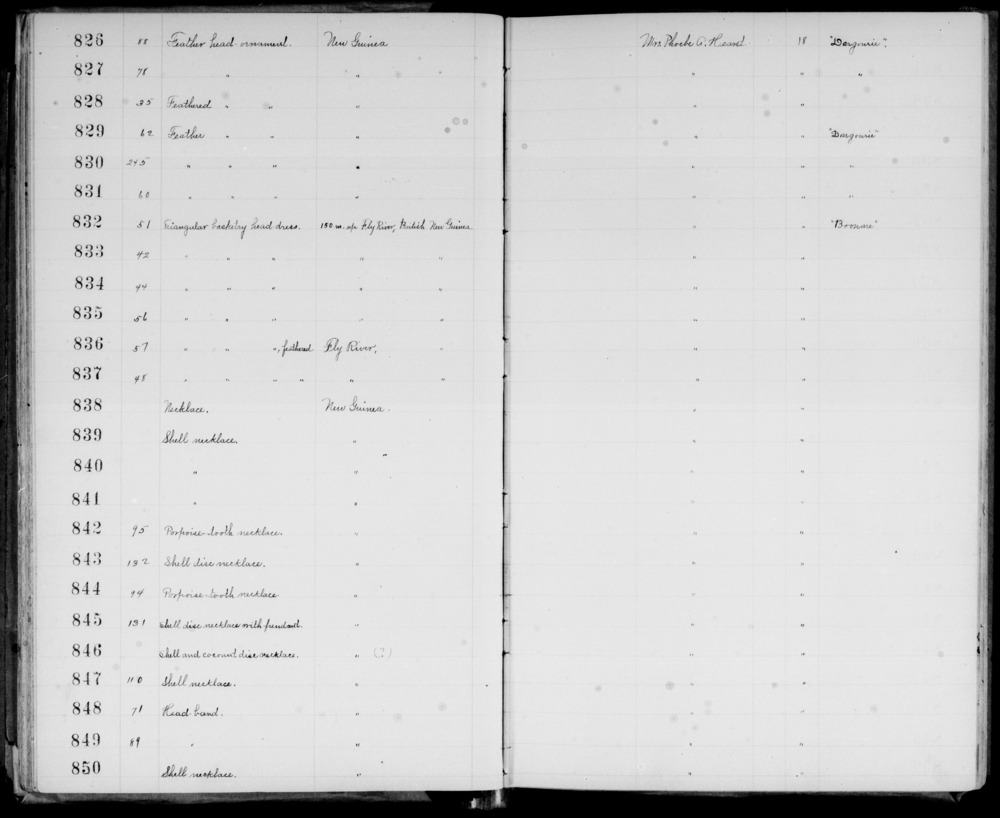 826 88 Feather head-ornament. New Guinea Mrs. Phoebe A. Hearst 18 "Dargourie".
827 78 " " " " "
828 35 Feathered " " " " "
829 62 Feather " " " " " "Dargourie"
830 245 " " " " " " "
831 60 " " " " " " "
832 51 Triangular basketry head dress. 150 m. up Fly River, British New Guinea " "
833 42 " " " " " " "
834 44 " " " " " " "
835 56 " " " " " " "
836 57 " " ", feathered Fly River, " " "
837 48 " " " " " " " "
838 Necklace. New Guinea. " "
839 Shell necklace. " " "
840 " " " "
841 " " " "
842 95 Porpoise-tooth necklace. " " "
843 132 Shell disc necklace. " " "
844 94 Porpoise-tooth necklace " " "
845 131 Shell disc necklace with pendant. " " "
846 Shell and coconut disc necklace. " (?) " "
847 110 Shell necklace. " " "
848 71 Head band. " " "
849 89 " " " "
850 Shell necklace. " " "